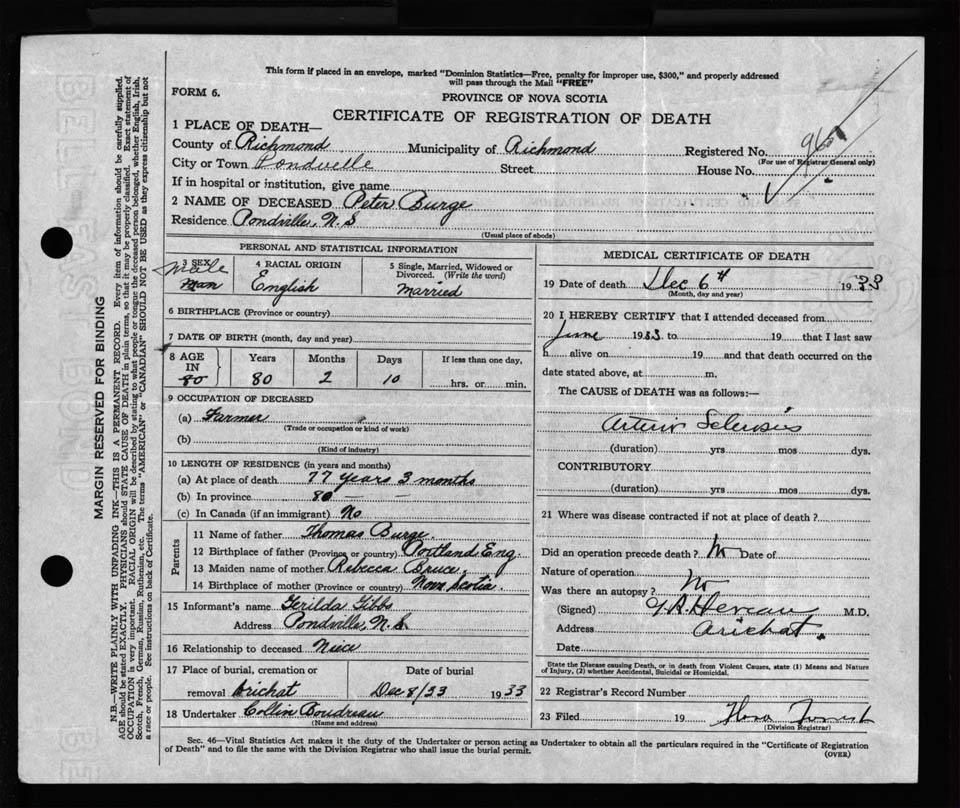 This form if placed in an envelope, marked "Dominion Statistics—Free, penalty for improper use, $300," and properly addressed
will pass through the Mail "FREE"
FORM 6.
PROVINCE OF NOVA SCOTIA
CERTIFICATE OF REGISTRATION OF DEATH
1 PLACE OF DEATH—
County of Richmond Municipality of Richmond Registered No.
(For use of Registrar General only)
City or Town Pondvelle Street House No.
If in hospital or institution, give name
2 NAME OF DECEASED Peter Burge
Residence Pondville, N.S
(Usual place of abode)
PERSONAL AND STATISTICAL INFORMATION
3 SEX male man
4 RACIAL ORIGIN English
5 Single, Married, Widowed or Divorced. (Write the word) married
6 BIRTHPLACE (Province or country)
7 DATE OF BIRTH (month, day and year)
8 AGE IN 80
Years 80 Months 2 Days 10
If less than one day, hrs. or min.
9 OCCUPATION OF DECEASED
(a) Farmer
(Trade or occupation or kind of work)
(b)
(Kind of industry)
10 LENGTH OF RESIDENCE (in years and months)
(a) At place of death 77 years 3 months
(b) In province 80 — —
(c) In Canada (if an immigrant) No
Parents
11 Name of father Thomas Burge
12 Birthplace of father (Province or country) Portland Eng
13 Maiden name of mother Rebecca Bruce
14 Birthplace of mother (Province or country) Nova Scotia.
15 Informant's name Gibbs
Address Pondville, N.S.
16 Relationship to deceased Niece
17 Place of burial, cremation or Date of burial
removal Arichat Dec 8/33 1933
18 Undertaker Collin Boudreau
(Name and address)
MEDICAL CERTIFICATE OF DEATH
19 Date of death Dec 6th 1933
(Month, day and year)
20 I HEREBY CERTIFY that I attended deceased from
June 1933 to 19 that I last saw
h alive on 19 and that death occurred on the
date stated above, at m.
The CAUSE of DEATH was as follows:—
Arterio Sclerosis
(duration) yrs mos dys.
CONTRIBUTORY
(duration) yrs mos dys.
21 Where was disease contracted if not at place of death?
Did an operation precede death? No Date of
Nature of operation
Was there an autopsy? No
(Signed) M.D.
Address Arichat.
Date
State the Disease causing Death, or in death from Violent Causes, state (1) Means and Nature
of Injury, (2) whether Accidental, Suicidal or Homicidal.
22 Registrar's Record Number
23 Filed 19
(Division Registrar)
Sec. 46—Vital Statistics Act makes it the duty of the Undertaker or person acting as Undertaker to obtain all the particulars required in the "Certificate of Registration
of Death" and to file the same with the Division Registrar who shall issue the burial permit.
(OVER)
MARGIN RESERVED FOR BINDING
N.B.—WRITE PLAINLY WITH UNFADING INK—THIS IS A PERMANENT RECORD. Every item of information should be carefully supplied.
AGE should be stated EXACTLY. PHYSICIANS should STATE CAUSE OF DEATH in plain terms, so that it may be properly classified. Exact statement of
OCCUPATION is very important. RACIAL ORIGIN will be described by stating to what people or tongue the deceased person belonged, whether English, Irish,
Scotch, French, German, Russian, Ruthenian, etc. The terms "AMERICAN" or "CANADIAN" SHOULD NOT BE USED as they express citizenship but not
a race or people. See instructions on back of Certificate.